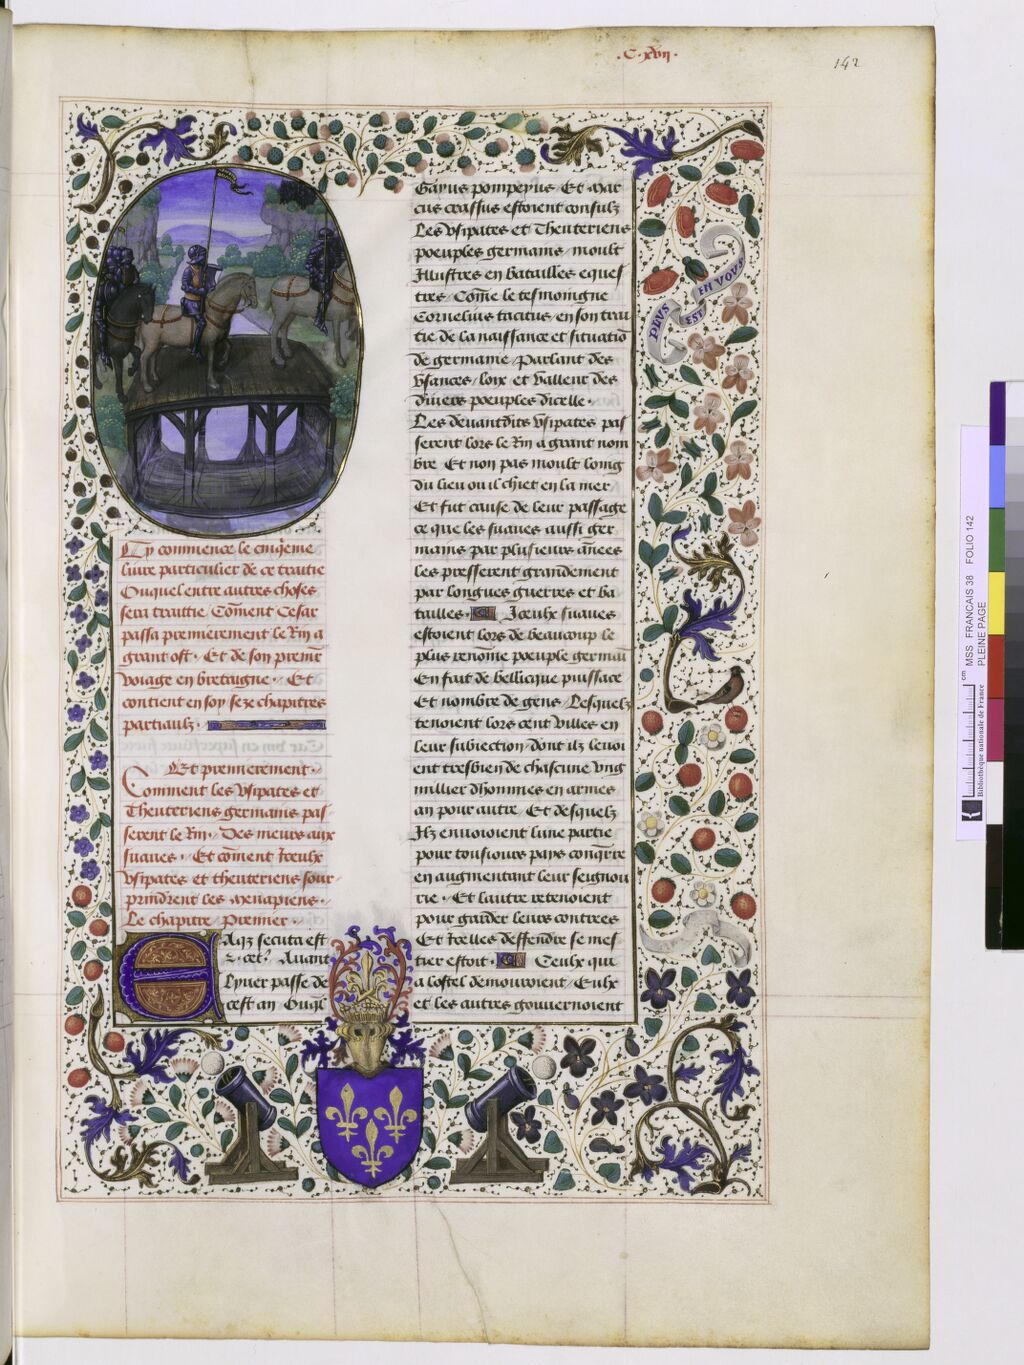 .C. xvij.
142
PLVS
EST
EN VOVS
Cy commence le cinq̄eme
liure particulier de ce traitie
Ouquel entre autres choses
sera traittie Cōment Cesar
passa premierement le Rin a
grant ost. Et de son premr̄
voiage en bretaigne. Et
contient en soy seze chapitres
partiaulx.
Et premierement.
Comment les vsipates et
Theuteriens germains pas
serent le Rin. Des meurs aux
sueues. Et cōment Iceulx
vsipates et theuteriens sour
prindrent les Menapiens.
Le chapitre Premier.
Auant
Lyuer passe de
cest an Ouql̄
Gayus pompeyus. Et Mar
cus crassus estoient consulz
Les vsipates et Theuteriens
poeuples germains moult
Illustres en batailles eques
tres. Cōme le tesmoingne
Cornelius tacitus en son trai
tie de la naissance et situatiō
de germanie Parlant des
vsances loix et valleur des
diuers poeuples dicelle.
Les deuantdits vsipates pas
serent lors le Rin a grant nom
bre Et non pas moult loing
du lieu ou il chiet en la mer
Et fut cause de leur passage
ce que les sueues aussi ger
mains par plusieurs ānees
les presserent grandement
par longues guerres et ba
tailles. Iceulx sueues
estoient lors de beaucop le
plus renōme poeuple germai
En fait de bellicque puissāce
Et nombre de gens Lesquelz
tenoient lors cent villes en
leur subiection dont ilz leuoi
ent tresbien de chascune vng
millier dhommes en armes
an pour autre Et desquelz
Ilz enuoioient lune partie
pour tousiours pays conq̄rre
en augmentant leur seignou
rie. Et lautre retenoient
pour garder leurs contrees
Et Icelles deffendre se mes
tier estoit. Ceulx qui
a lostel demouroient Eulx
et les autres gouuernoient
MSS FRANCAIS 38 FOLIO 142
PLEINE PAGE
cm
Bibliothèque nationale de France